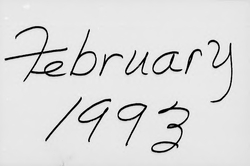 February
1993